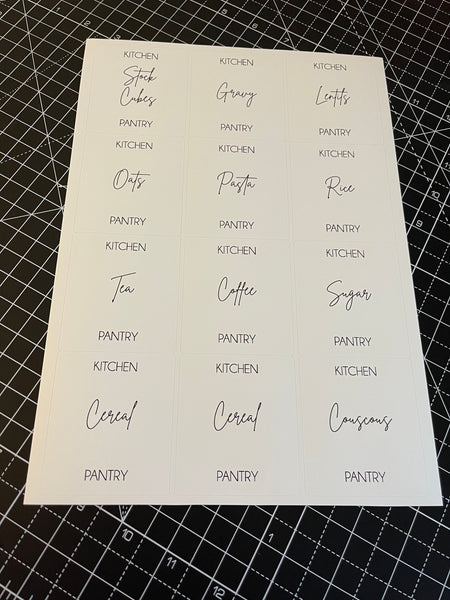 KITCHEN
Stock
Cubes
PANTRY
KITCHEN
Gravy
PANTRY
KITCHEN
Lentils
PANTRY
KITCHEN
Oats
PANTRY
KITCHEN
Pasta
PANTRY
KITCHEN
Rice
PANTRY
KITCHEN
Tea
PANTRY
KITCHEN
Coffee
PANTRY
KITCHEN
Sugar
PANTRY
KITCHEN
Cereal
PANTRY
KITCHEN
Cereal
PANTRY
KITCHEN
Couscous
PANTRY
10
11
12
1